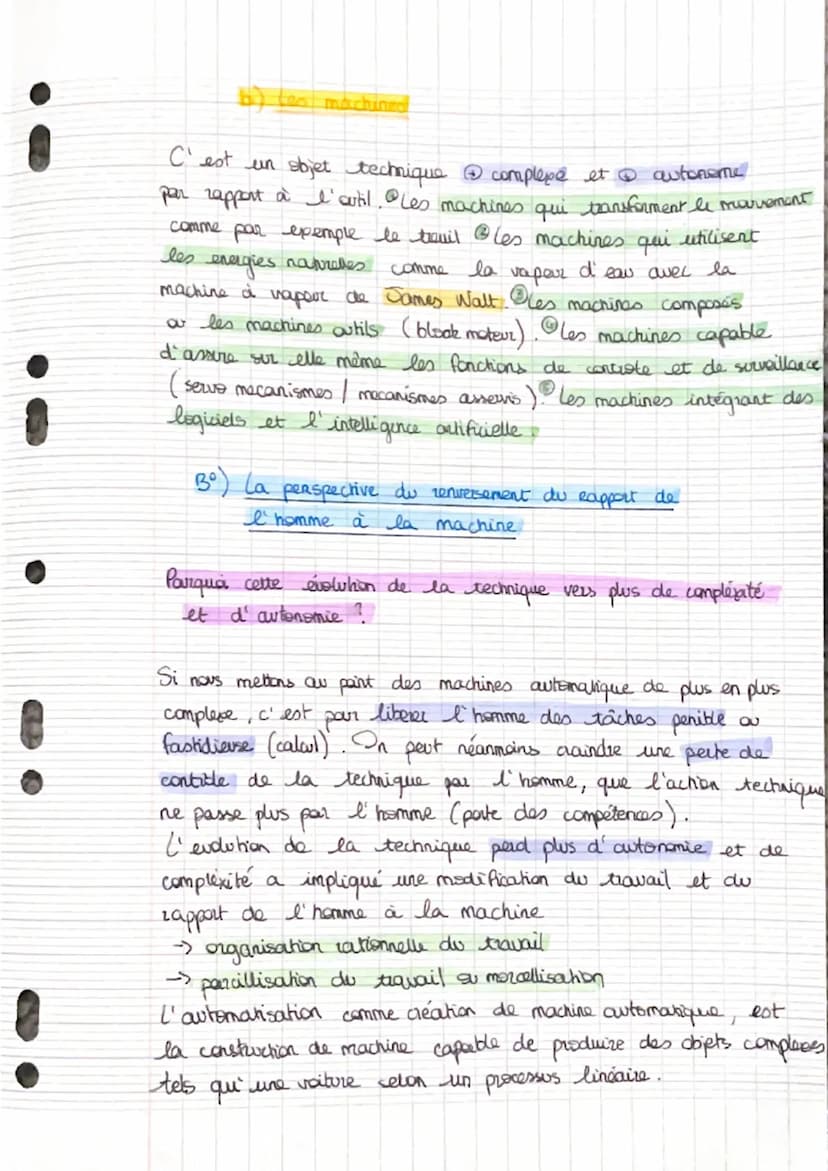 b) Les machines
C'est un objet technique ⊕ complexe et ⊕ autonome
par rapport à l'outil. ① Les machines qui transforment le mouvement
comme par exemple le treuil ② les machines qui utilisent
les energies naturelles comme la vapeur d'eau avec la
machine à vapeur de James Walt. ③ Les machines composés
ou les machines outils (block moteur). ④ Les machines capable
d'assure sur elle même les fonctions de controle et de surveillance
(servo mecanismes / mecanismes asservis). ⑤ Les machines intégrant des
logiciels et l'intelligence artificielle.
B°) La perspective du renversement du rapport de
l'homme à la machine
Pourquoi cette évolution de la technique vers plus de compléxité
et d'autonomie ?
Si nous mettons au point des machines automatique de plus en plus
complexe, c'est pour liberer l'homme des tâches penible ou
fastidieuse (calcul). On peut néanmoins craindre une perte de
contrôle de la technique par l'homme, que l'action technique
ne passe plus par l'homme (perte des compétences).
L'evolution de la technique perd plus d'autonomie et de
compléxité a impliqué une modification du travail et du
rapport de l'homme à la machine
-> organisation rationnelle du travail
-> parcillisation du travail ou morcellisation
L'automatisation comme création de machine automatique, est
la construction de machine capable de produire des objets complexes
tels qu'une voiture selon un processus linéaire.